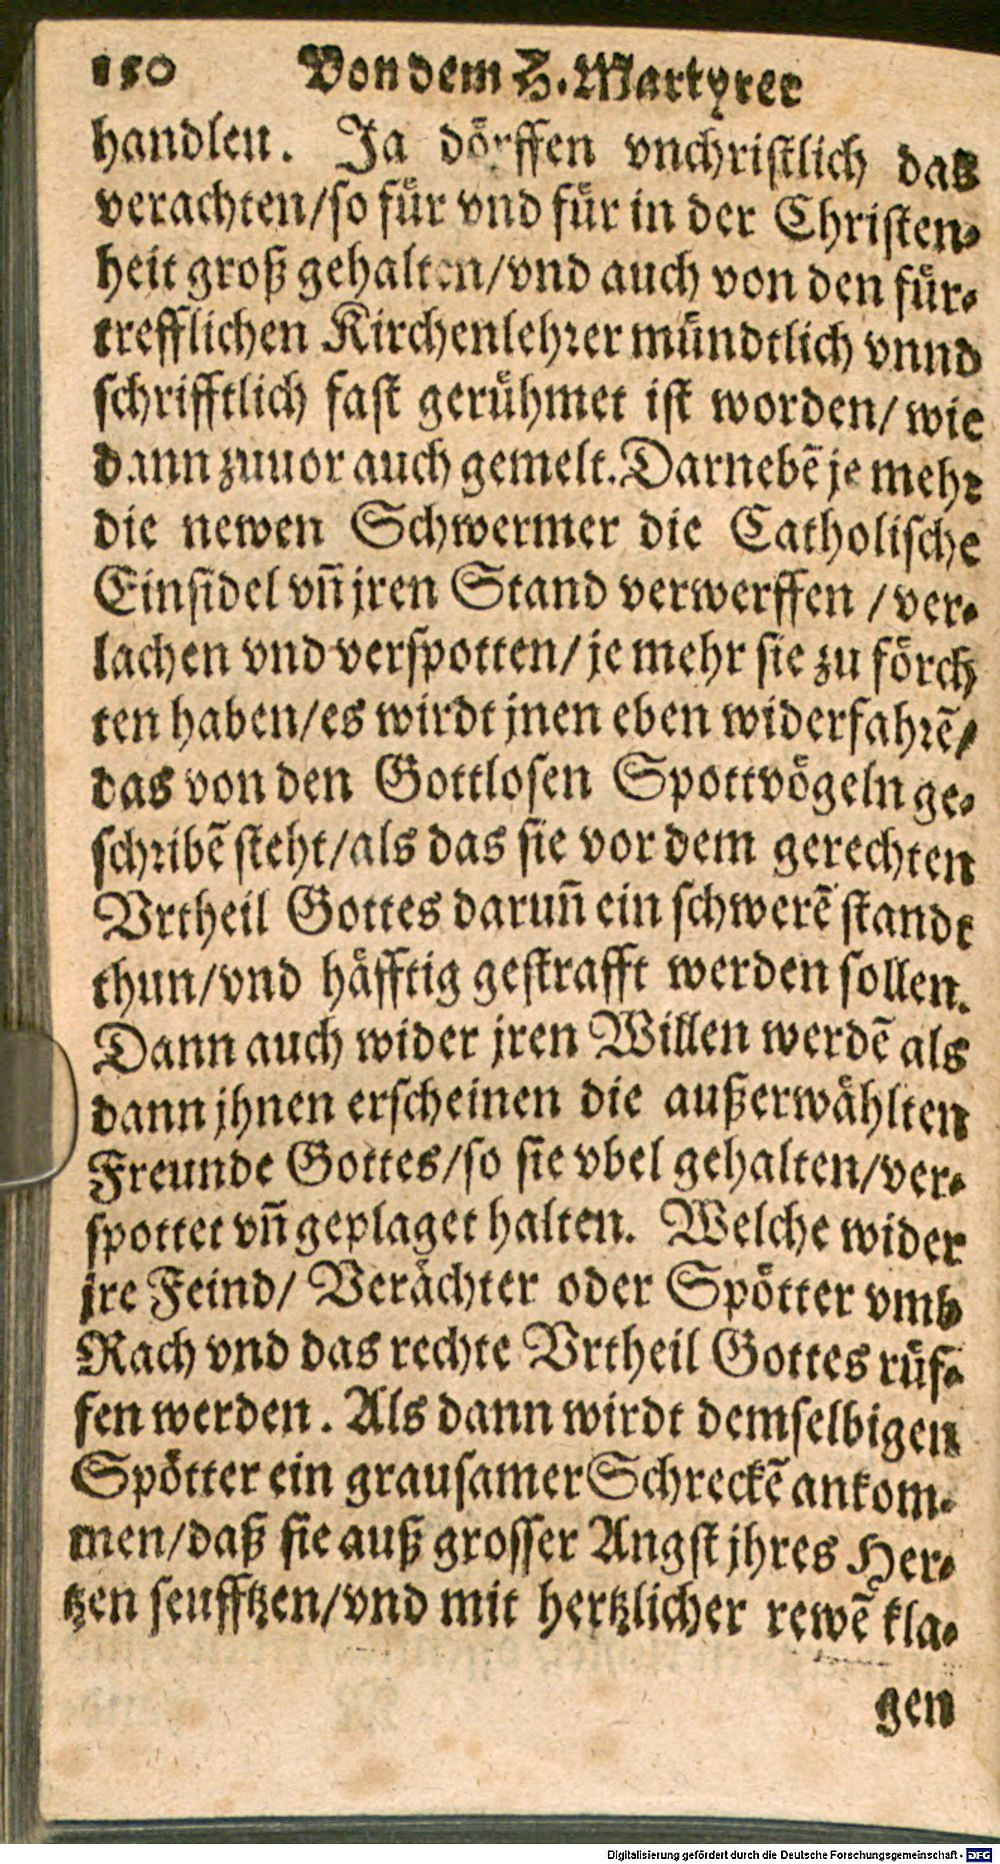 150 Von dem H. Martyrer
handlen. Ja doͤrffen vnchristlich das
verachten/so fuͤr vnd fuͤr in der Christen-
heit groß gehalten/vnd auch von den fuͤr-
trefflichen Kirchenlehrer muͤndtlich vnnd
schrifftlich fast geruͤhmet ist worden/wie
dann zuuor auch gemelt. Darnebẽ je mehr
die newen Schwermer die Catholische
Einsidel vñ jren Stand verwerffen /ver-
lachen vnd verspotten/je mehr sie zu foͤrch
ten haben/es wirdt jnen eben widerfahrẽ/
das von den Gottlosen Spottvoͤgeln ge-
schribẽ steht/als das sie vor dem gerechten
Vrtheil Gottes daruñ ein schwerẽ standt
thun/vnd haͤfftig gestrafft werden sollen.
Dann auch wider jren Willen werdẽ als
dann jhnen erscheinen die außerwaͤhlten
Freunde Gottes/so sie vbel gehalten/ver-
spottet vñ geplaget halten. Welche wider
jre Feind/ Veraͤchter oder Spoͤtter vmb
Rach vnd das rechte Vrtheil Gottes ruͤf-
fen werden. Als dann wirdt demselbigen
Spoͤtter ein grausamer Schreckẽ ankom-
men/daß sie auß grosser Angst jhres Her-
tzen seufftzen/vnd mit hertzlicher rewẽ kla-
gen
Digitalisierung gefördert durch die Deutsche Forschungsgemeinschaft - DFG